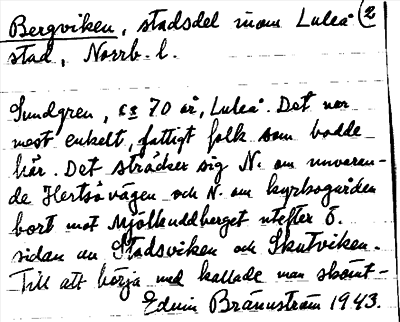 Bergviken, stadsdel inom Luleå (2
stad, Norrb. l.
Sundgren, ca 70 år, Luleå. Det var
mest enkelt, fattigt folk som bodde
här. Det sträcker sig N. om nuvaran-
de Hertsövägen och N. om kyrkogården
bort mot Mjölkuddberget utefter ö.
sidan av Stadsviken och Skutviken.
Till att börja med kallade man skämt-
Edvin Brännström 1943.